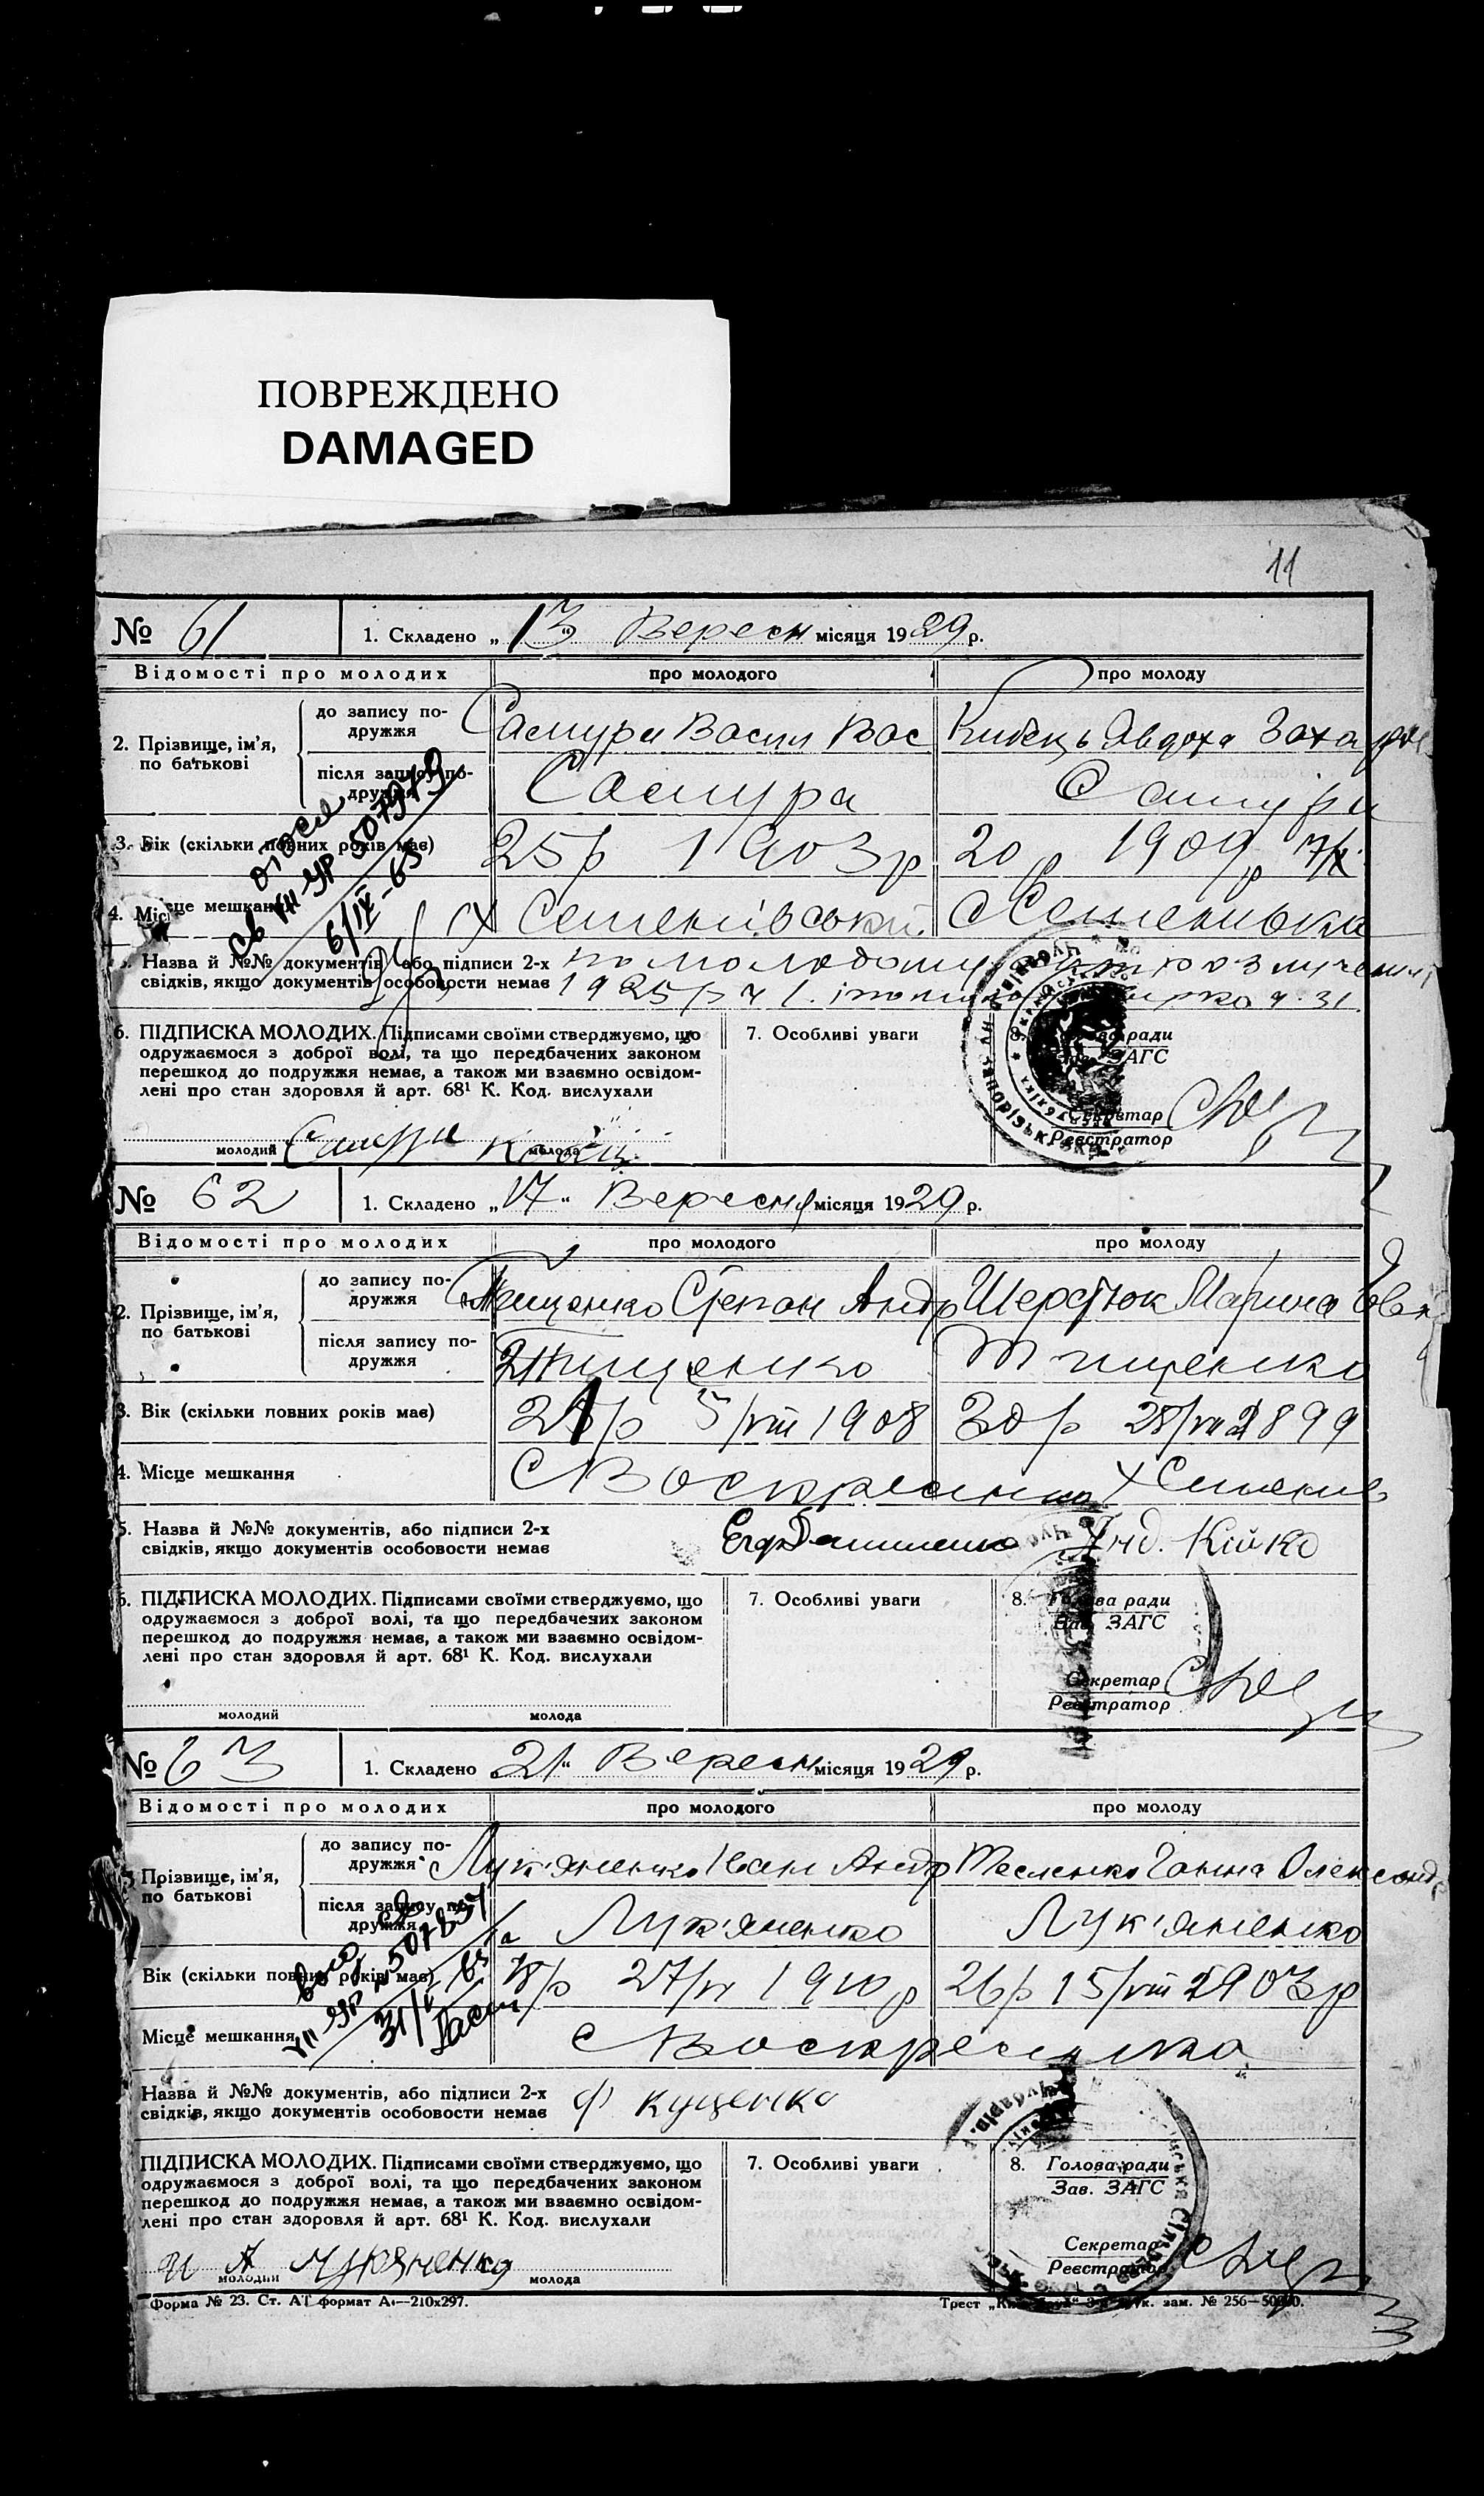 ПОВРЕЖДЕНО
DAMAGED
11
№ 61 1. Складено „13“ Вересн місяця 1929 р.
Відомості про молодих про молодого про молоду
2. Прізвище, ім'я, по батькові
до запису подружжя Самура Васил Вас Явдоха Захаров
після запису подружжя Самура Самура
3. Вік (скільки повних років має) 25 р 1903 р 20 р 1909 р
4. Місце мешкання Х Семенівський С Семенивка
5. Назва й №№ документів, або підписи 2-х
свідків, якщо документів особовости немає 1925 р ч 1. ч. 31.
507979
6/IV-65
6. ПІДПИСКА МОЛОДИХ. Підписами своїми стверджуємо, що
одружаємося з доброї волі, та що передбачених законом
перешкод до подружжя немає, а також ми взаємно освідом-
лені про стан здоровля й арт. 68¹ К. Код. вислухали
7. Особливі уваги
8. Голова ради
Зав. ЗАГС
Секретар
Реєстратор
молодий Самура молода
№ 62 1. Складено „17“ Вересня місяця 1929 р.
Відомості про молодих про молодого про молоду
2. Прізвище, ім'я, по батькові
до запису подружжя Тищенко Степан Андр Шерстюк Марина
після запису подружжя Тищенко Тищенко
3. Вік (скільки повних років має) 21 р 5/VIII 1908 30 р 28/VII 1899
4. Місце мешкання С Воскресинка Х Семенив
5. Назва й №№ документів, або підписи 2-х
свідків, якщо документів особовости немає Кійко
6. ПІДПИСКА МОЛОДИХ. Підписами своїми стверджуємо, що
одружаємося з доброї волі, та що передбачених законом
перешкод до подружжя немає, а також ми взаємно освідом-
лені про стан здоровля й арт. 68¹ К. Код. вислухали
7. Особливі уваги
8. Голова ради
Зав. ЗАГС
Секретар
Реєстратор
молодий молода
№ 63 1. Складено 21“ Вересн місяця 1929 р.
Відомості про молодих про молодого про молоду
Прізвище, ім'я, по батькові
до запису подружжя Лук'яненко Іван Андр Тесленко Ганна Олександр
після запису подружжя Лук'яненко Лук'яненко
Вік (скільки повних років має) 18 р 27/VI 1910 р 26 р 15/VIII 1903 р
Місце мешкання с Воскресинка
Назва й №№ документів, або підписи 2-х
свідків, якщо документів особовости немає Ф Куценко
ПІДПИСКА МОЛОДИХ. Підписами своїми стверджуємо, що
одружаємося з доброї волі, та що передбачених законом
перешкод до подружжя немає, а також ми взаємно освідом-
лені про стан здоровля й арт. 68¹ К. Код. вислухали
7. Особливі уваги
8. Голова ради
Зав. ЗАГС
Секретар
Реєстратор
молодий молода
Форма № 23. Ст. АТ формат А₄—210х297. Трест зам. № 256—